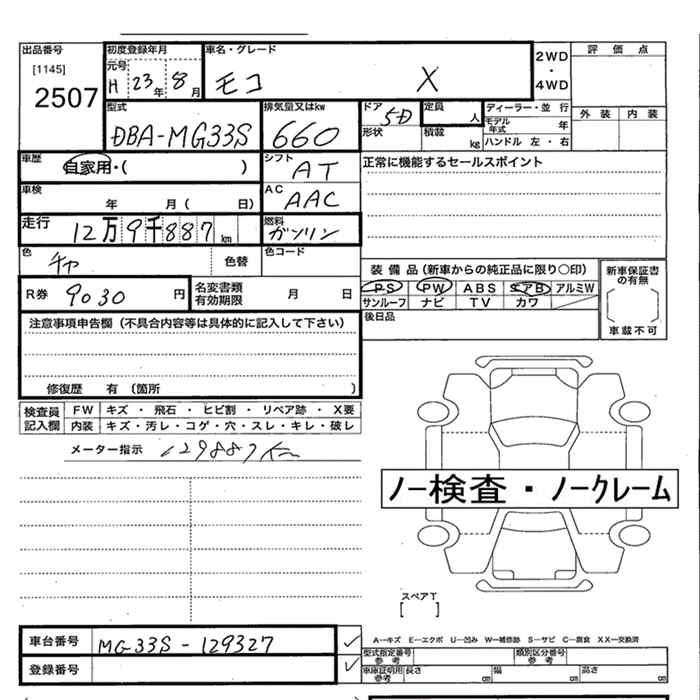 出品番号
[1145]
2507
初度登録年月
元号
H 23年 8月
車名・グレード
モコ X
2WD
・
4WD
評価点
外装 内装
型式
DBA-MG33S
排気量又はkw
660
ドア
5D
形状
定員
人
積載
kg
ディーラー・並行
モデル年式 年
ハンドル 左・右
車歴
自家用・( )
シフト
AT
正常に機能するセールスポイント
車検
年 月( 日)
AC
AAC
走行
12万9千887km
燃料
ガソリン
色
チャ
色替
色コード
装備品(新車からの純正品に限り○印)
PS PW ABS エアB アルミW
サンルーフ ナビ TV カワ
新車保証書の有無
車載不可
R券 9030円
名変書類有効期限 月 日
後日品
注意事項申告欄(不具合内容等は具体的に記入して下さい)
修復歴 有 (箇所 )
検査員記入欄
FW キズ・飛石・ヒビ割・リペア跡・X要
内装 キズ・汚レ・コゲ・穴・スレ・キレ・破レ
メーター指示 129887km
ノー検査・ノークレーム
スペアT
[ ]
車台番号 MG33S-129327
登録番号
A-キズ E-エクボ U-凹み W-補修跡 S-サビ C-腐食 XX-交換済
型式指定番号 参考
類別区分番号 参考
車庫証明用 参考
長さ cm
幅 cm
高さ cm